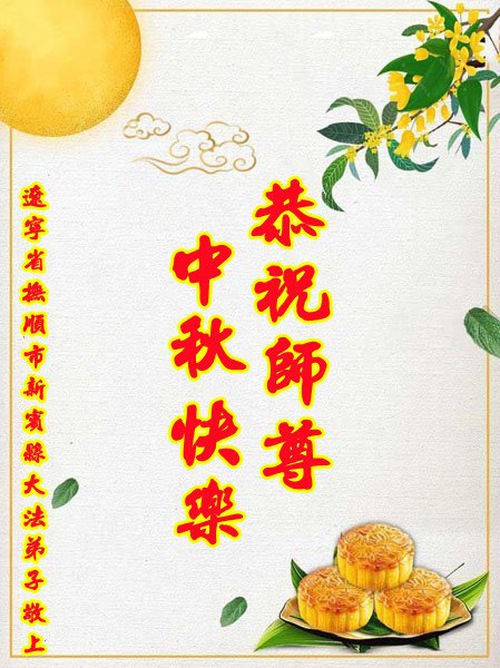 恭祝師尊
中秋快樂
遼寧省撫順市新賓縣大法弟子敬上